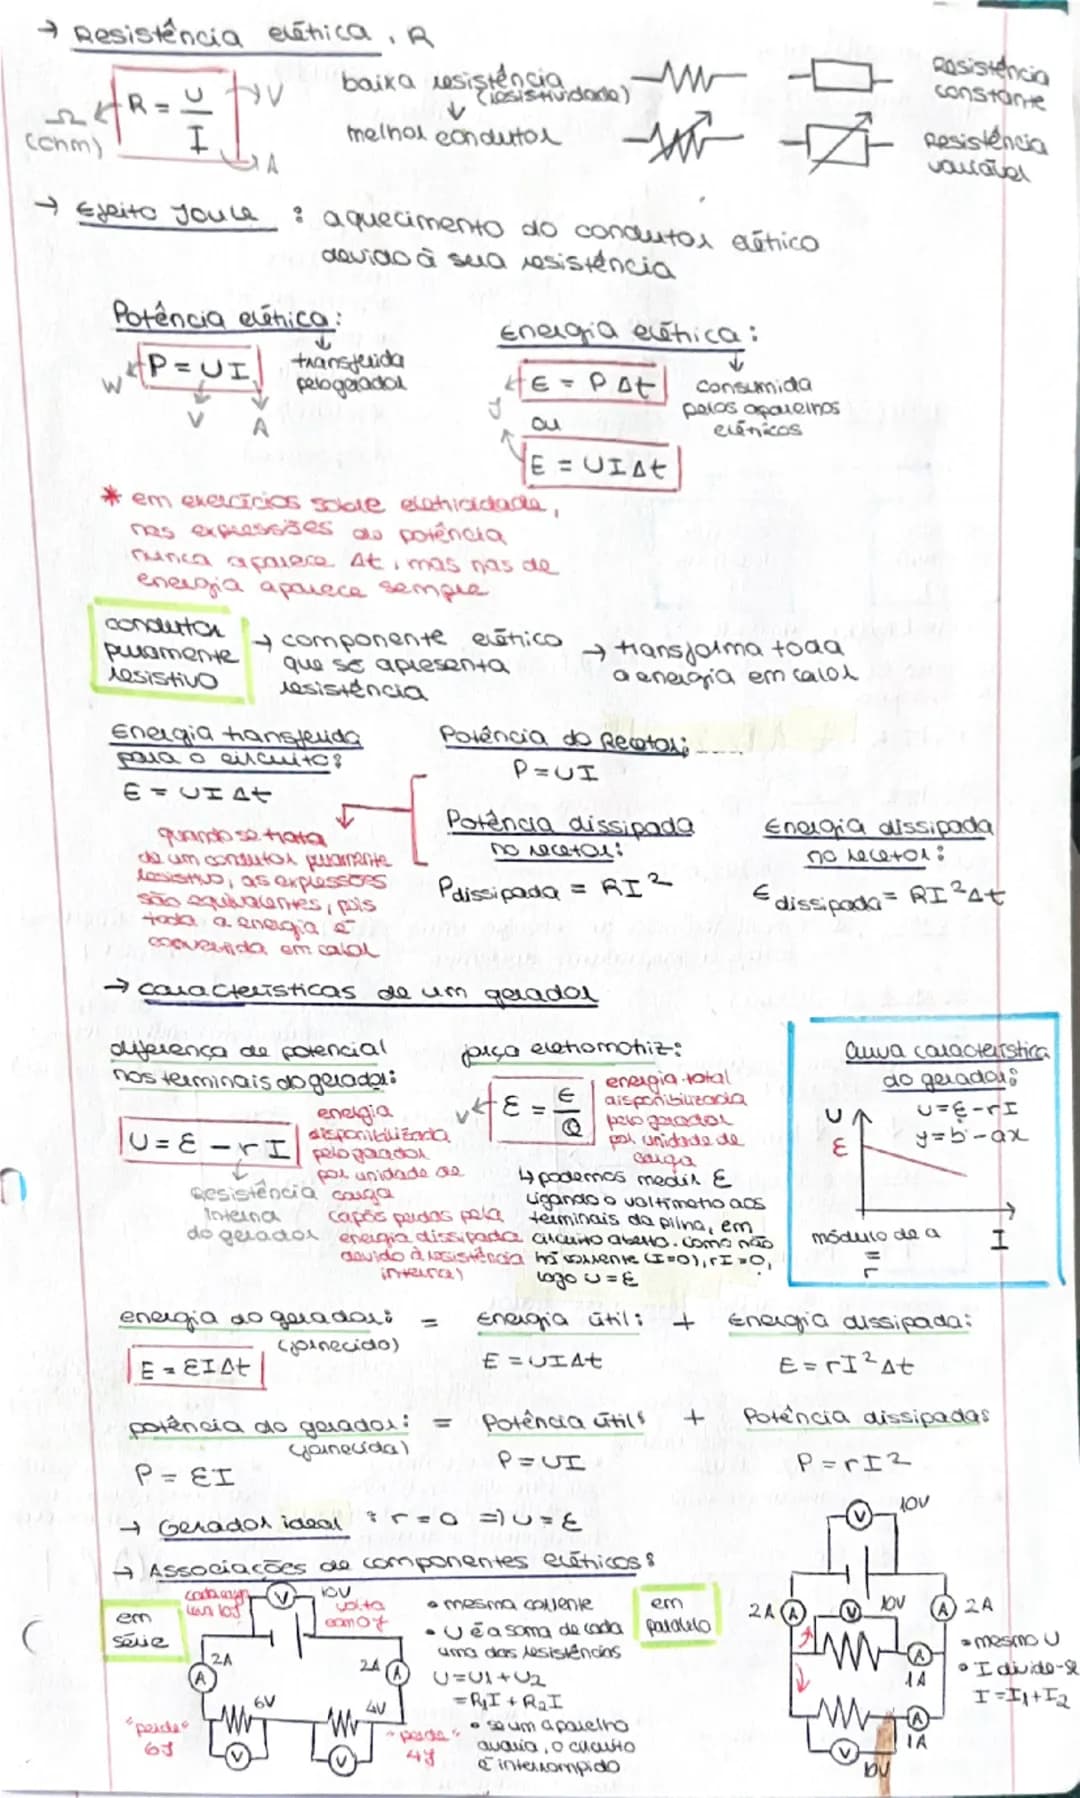 → Resistência elétrica, R
R = U/I
V
A
Ω
(Ohm)
baixa resistência
(resistividade)
↓
melhor condutor
Resistência
constante
Resistência
variável
→ Efeito Joule : aquecimento do condutor elétrico
devido à sua resistência
Potência elétrica:
P = UI
W
V
A
transferida
pelo gerador
Energia elétrica:
E = P Δt
J
ou
E = UIΔt
consumida
pelos aparelhos
elétricos
* em exercícios sobre eletricidade,
nas expressões da potência
nunca aparece Δt, mas nas de
energia aparece sempre
condutor
puramente
resistivo
→ componente elétrico
que só apresenta
resistência
→ transforma toda
a energia em calor
Energia transferida
para o circuito:
E = UIΔt
Potência do Recetor:
P=UI
Potência dissipada
no recetor:
Pdissipada = RI²
Energia dissipada
no recetor:
Edissipada = RI²Δt
quando se trata
de um condutor puramente
resistivo, as expressões
são equivalentes, pois
toda a energia é
convertida em calor
→ características de um gerador
diferença de potencial
nos terminais do gerador:
U = ε - r I
energia
disponibilizada
pelo gerador
por unidade de
carga
(após perdas pela
energia dissipada
devido à resistência
interna)
Resistência
Interna
do gerador
força eletromotriz:
V
ε = E/Q
energia total
disponibilizada
pelo gerador
por unidade de
carga
↳ podemos medir ε
ligando o voltímetro aos
terminais da pilha, em
circuito aberto. Como não
há corrente (I=0), rI=0,
logo U = ε
Curva característica
do gerador:
U=ε-rI
y=b-ax
U
ε
I
módulo de a
=
r
energia do gerador: = Energia útil: + Energia dissipada:
(fornecida)
E = εIΔt
E = UIΔt
E = rI²Δt
potência do gerador: = Potência útil: + Potência dissipada:
(fornecida)
P = εI
P = UI
P = rI²
→ Gerador ideal : r = 0 => U = ε
→ Associações de componentes elétricos:
em
série
V
10V
volta
com 0J
2A
A
2A
A
6V
4V
V
V
"perde"
6J
"perde"
4J
• mesma corrente
• U é a soma de cada
uma das resistências
U=U1+U2
=R1I+R2I
• se um aparelho
avaria, o circuito
é interrompido
em
paralelo
V
10V
2A A
V
10V
A 2A
A
1A
A
1A
V
10V
• mesmo U
• I divide-se
I=I1+I2